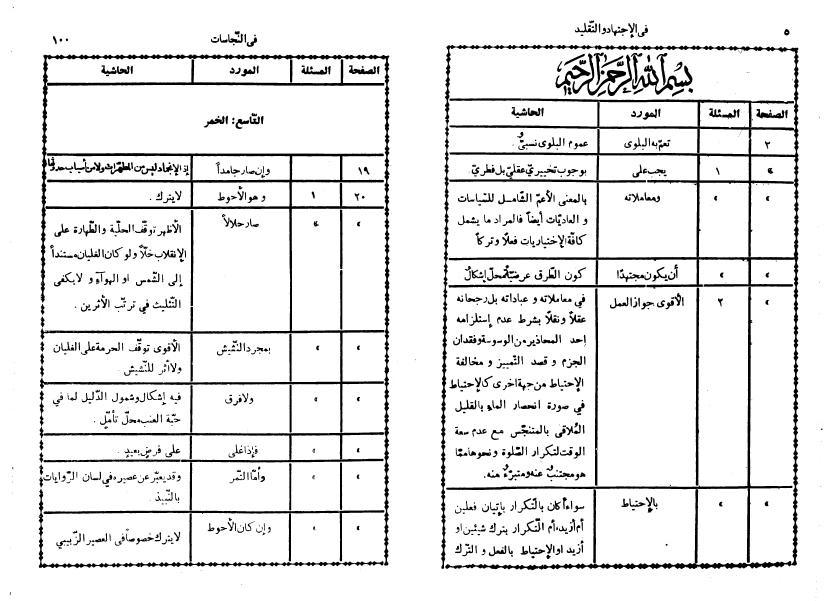 في الإجتهاد والتّقليد
٥
بسم الله الرّحمن الرّحيم
الصفحة المسئلة المورد الحاشية
٢ تعمّ به البلوى عموم البلوى نسبيٌّ.
« ١ يجب على بوجوب تخييريّ عقليّ بل فطريّ
« « ومعاملاته بالمعنى الأعمّ الشّامل للسّياسات
و العاديّات أيضاً فالمراد ما يشمل
كافّة الإختياريات فعلاً وتركاً
« « أن يكون مجتهدًا كون الطّرق عرضيّة محلّ إشكالٌ
« ٢ الأقوى جواز العمل في معاملاته و عباداته بل رجحانه
عقلاً ونقلاً بشرط عدم إستلزامه
إحد المحاذير من الوسوسة وفقدان
الجزم و قصد التّمييز و مخالفة
الإحتياط من جهة اخرى كالإحتياط
في صورة انحصار الماء بالقليل
المُلاقي بالمتنجّس مع عدم سعة
الوقت لتكرار الصّلوة ونحوها ممّا
هو مجتنبٌ عنه ومتبرّءٌ منه.
« « بالإحتياط سواء أكان بالتّكرار بإتيان فعلين
أم أزيد، أم التّكرار بترك شيئين او
أزيد او الإحتياط بالفعل و التّرك
في النّجاسات
١٠٠
الصفحة المسئلة المورد الحاشية
التّاسع: الخمر
١٩ وإن صار جامداً إذ الإنجماد ليس من المطهّرات ولا من أسباب
٢٠ ١ وهو الأحوط لايترك .
« « صار حلالاً الأظهر توقّف الحلّية والطّهارة على
الإنقلاب خلّاً ولو كان الغليان مستنداً
إلى الشّمس او الهوآء و لايكفى
التّثليث في ترتّب الأثرين .
« « بمجرد النّشيش الأقوى توقّف الحرمة على الغليان
ولا أثر للنّشيش
« « ولافرق فيه إشكال وشمول الدّليل لما في
حبّة العنب محلّ تأمّل .
« « فإذا غلى على فرضٍ بعيدٍ .
« « وأمّا التّمر وقد يعبّر عن عصيره في لسان الرّوايات
بالنّبيذ .
« « وإن كان الأحوط لايترك خصوصاً في العصير الزّبيبي